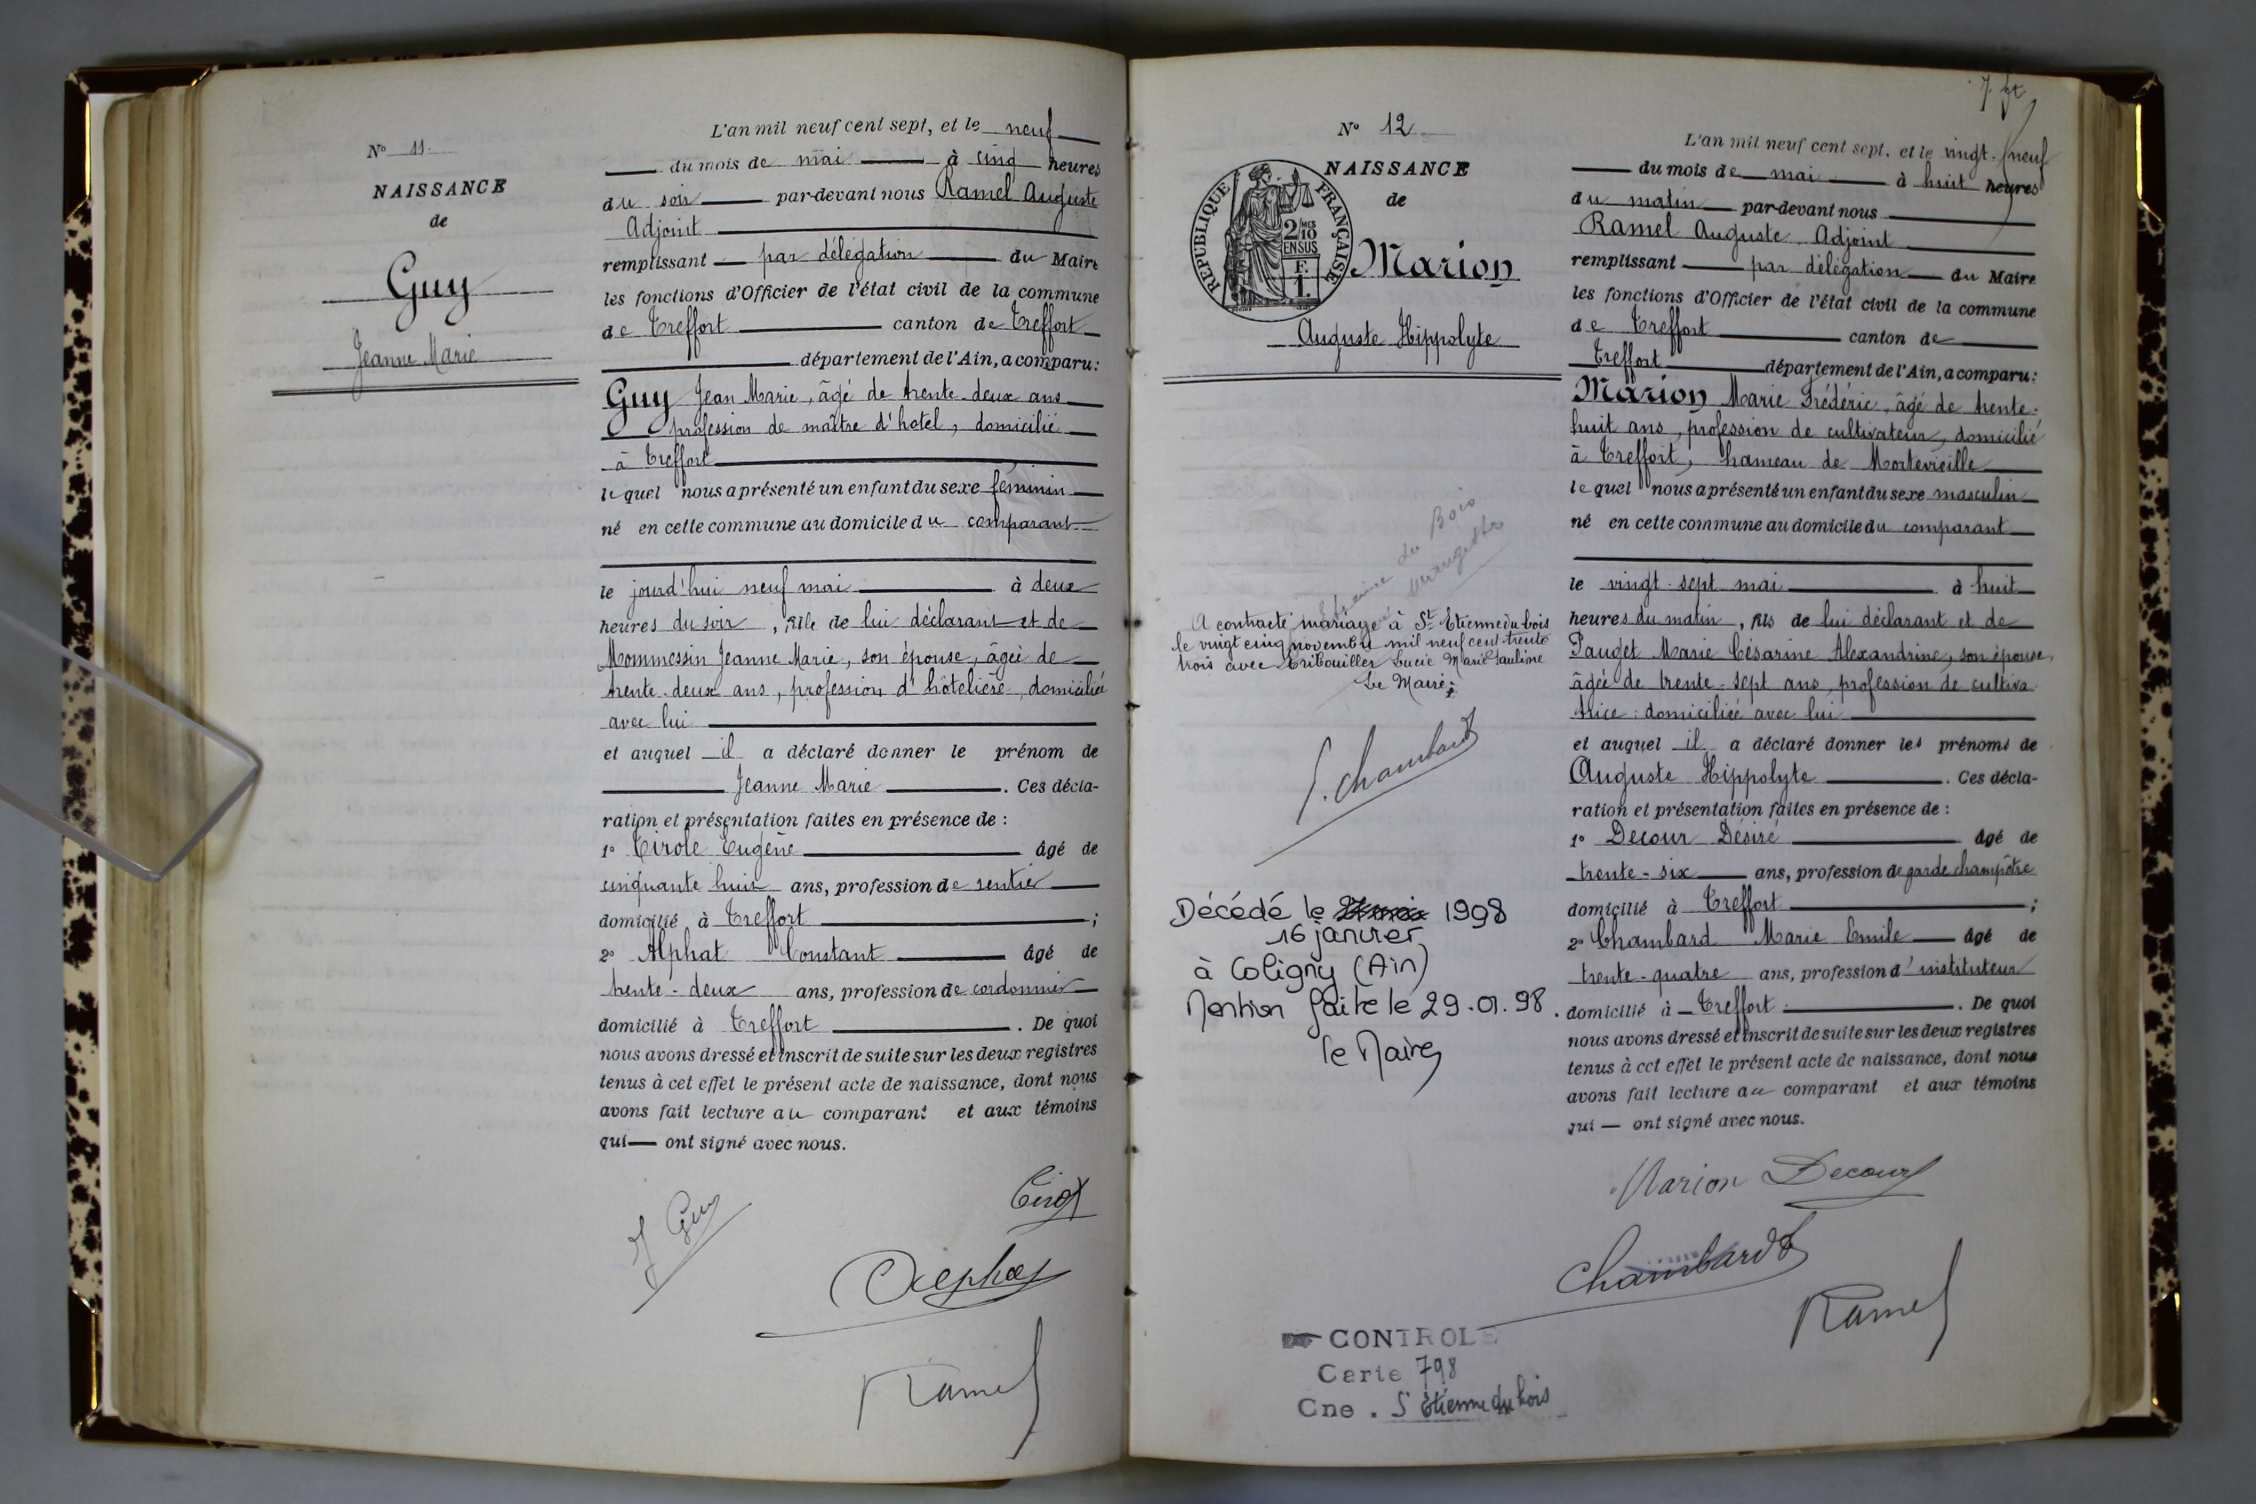 N° 11
NAISSANCE
de
Guy
Jeanne Marie
L'an mil neuf cent sept, et le neuf
du mois de mai à cinq heures
du soir par-devant nous Ramel Auguste
Adjoint
remplissant par délégation du Maire
les fonctions d'Officier de l'état civil de la commune
de Treffort canton de Treffort
département de l'Ain, a comparu:
Guy Jean Marie, âgé de trente-deux ans
profession de maître d'hotel, domicilié
à Treffort
lequel nous a présenté un enfant du sexe féminin
né en cette commune au domicile du comparant
le jourd'hui neuf mai à deux
heures du soir, fille de lui déclarant et de
Mommessin Jeanne Marie, son épouse, âgée de
trente-deux ans, profession d'hôtelière, domiciliée
avec lui
et auquel il a déclaré donner le prénom de
Jeanne Marie. Ces décla-
ration et présentation faites en présence de :
1° Tirole Eugène âgé de
cinquante huit ans, profession de rentier
domicilié à Treffort ;
2° Alphat Constant âgé de
trente-deux ans, profession de cordonnier
domicilié à Treffort. De quoi
nous avons dressé et inscrit de suite sur les deux registres
tenus à cet effet le présent acte de naissance, dont nous
avons fait lecture au comparant et aux témoins
qui ont signé avec nous.
J Guy
Ramel
7
N° 12
NAISSANCE
de
REPUBLIQUE FRANÇAISE
2/10 EN SUS
Marion
Auguste Hippolyte
du Bois
A contracté mariage à St Etienne du bois
le vingt cinq novembre mil neuf cent trente
trois avec Tribouiller Lucie Marie Pauline
Le Maire:
Chambard
Décédé le 1998
16 janvier
à Coligny (Ain)
Mention faite le 29.01.98.
le Maire,
L'an mil neuf cent sept, et le vingt-neuf
du mois de mai à huit heures
du matin par-devant nous
Ramel Auguste Adjoint
remplissant par délégation du Maire
les fonctions d'Officier de l'état civil de la commune
de Treffort canton de
Treffort département de l'Ain, a comparu:
Marion Marie Frédéric, âgé de trente-
huit ans, profession de cultivateur, domicilié
à Treffort, hameau de Montevieille
lequel nous a présenté un enfant du sexe masculin
né en cette commune au domicile du comparant
le vingt-sept mai à huit
heures du matin, fils de lui déclarant et de
Pauget Marie Césarine Alexandrine, son épouse,
âgée de trente-sept ans, profession de cultiva-
trice: domiciliée avec lui
et auquel il a déclaré donner les prénoms de
Auguste Hippolyte. Ces décla-
ration et présentation faites en présence de :
1° Decour Désiré âgé de
trente-six ans, profession de garde champêtre
domicilié à Treffort ;
2° Chambard Marie Emile âgé de
trente-quatre ans, profession d'instituteur
domicilié à Treffort. De quoi
nous avons dressé et inscrit de suite sur les deux registres
tenus à cet effet le présent acte de naissance, dont nous
avons fait lecture au comparant et aux témoins
qui ont signé avec nous.
Marion Decour
Chambard
Ramel
CONTROLE
Carte 798
Cne. St Etienne du bois